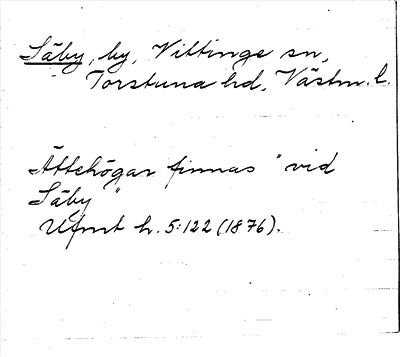 Säby, by, Vittinge sn,
Torstuna hd, Västm. l.
Ättehögar finnas "vid
Säby"
Ufmt h. 5:122 (1876).